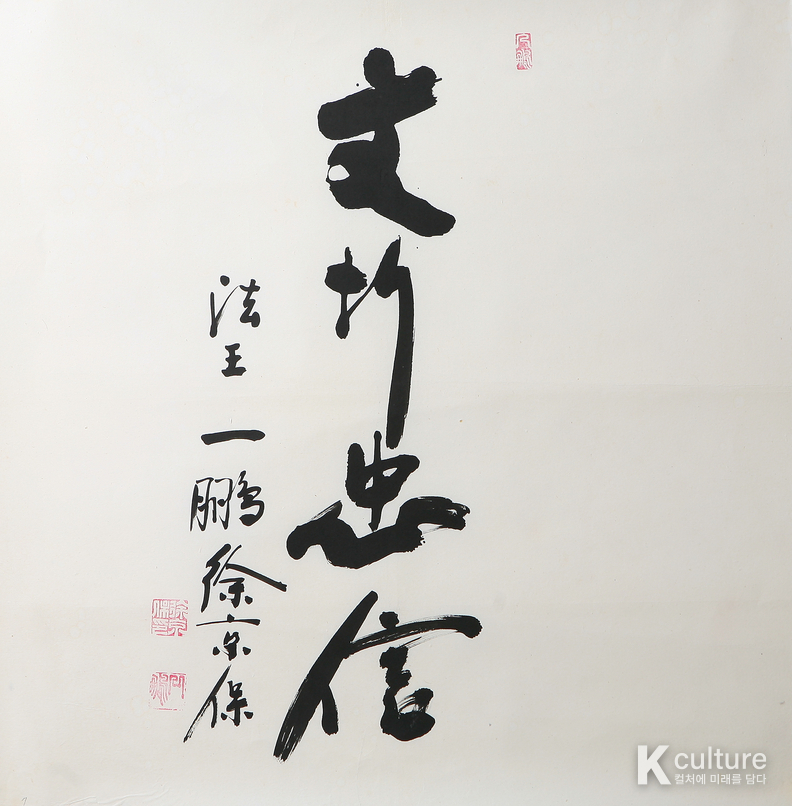 文行忠信
法王 一鵬 徐京保
K culture
컬처에 미래를 담다